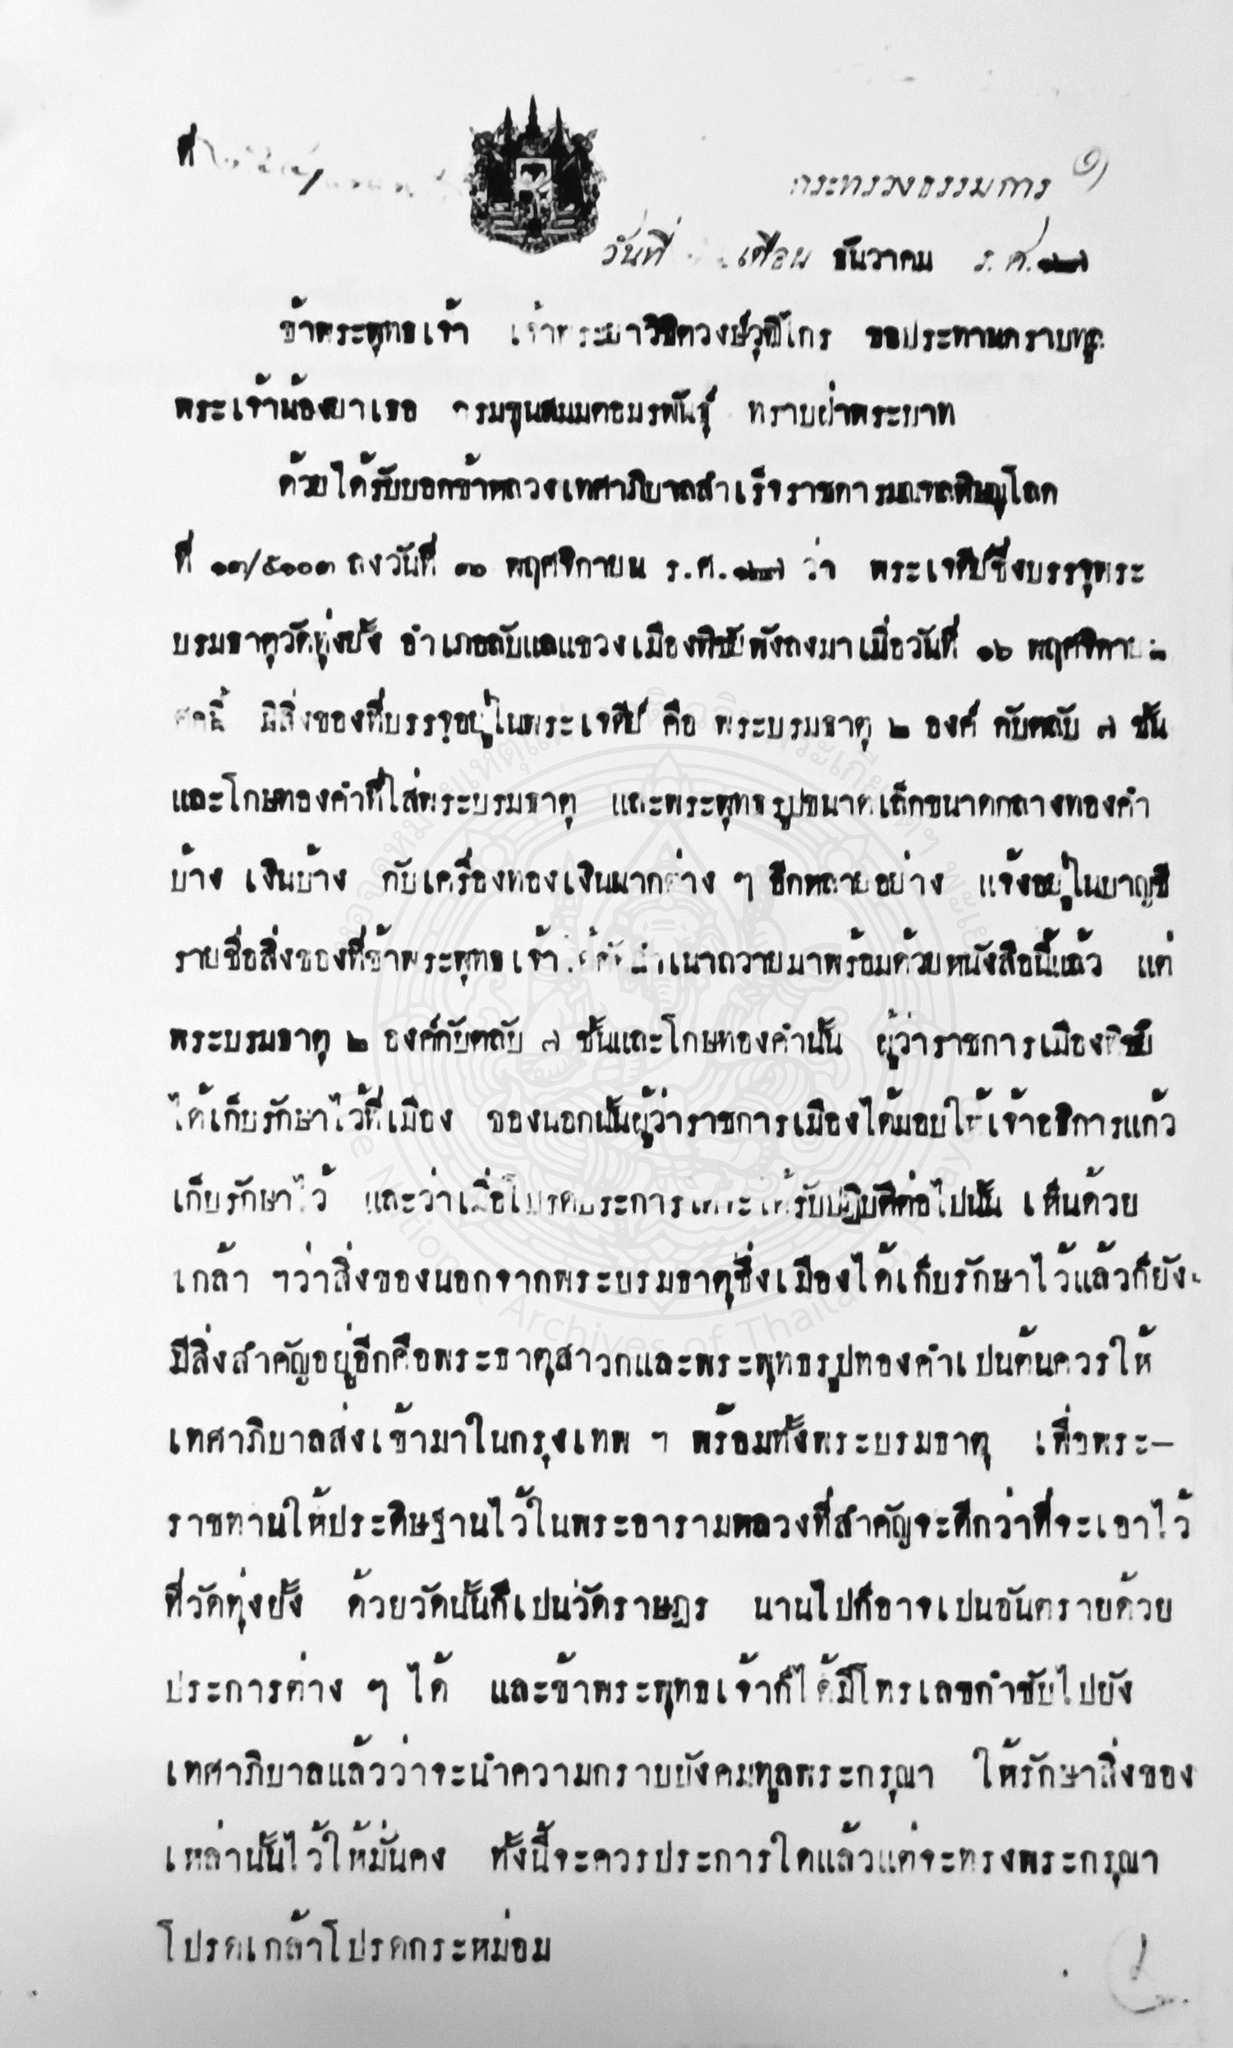 ที่
๑)
กระทรวงธรรมการ
วันที่ เดือน ธันวาคม ร.ศ. ๑๒๗
ข้าพระพุทธเจ้า เจ้าพระยาวิชิตวงษ์วุฒิไกร ขอประทานกราบทูล
พระเจ้าน้องยาเธอ กรมขุนสมมตอมรพันธุ์ ทราบฝ่าพระบาท
ด้วยได้รับบอกข้าหลวงเทศาภิบาลสำเร็จราชการมณฑลพิษณุโลก
ที่ ๑๓/๕๑๐๓ ลงวันที่ ๓๐ พฤศจิกายน ร.ศ. ๑๒๗ ว่า พระเจดีย์ซึ่งบรรจุพระ
บรมธาตุวัดทุ่งยั้ง อำเภอลับแลแขวงเมืองพิชัยพังลงมาเมื่อวันที่ ๑๖ พฤศจิกายน
ศกนี้ มีสิ่งของที่บรรจุอยู่ในพระเจดีย์ คือ พระบรมธาตุ ๒ องค์ กับตลับ ๗ ชั้น
และโกษทองคำที่ใส่พระบรมธาตุ และพระพุทธรูปขนาดเล็กขนาดกลางทองคำ
บ้าง เงินบ้าง กับเครื่องทองเงินนากต่าง ๆ อีกหลายอย่าง แจ้งอยู่ในบาญชี
รายชื่อสิ่งของที่ข้าพระพุทธเจ้าได้คัดสำเนาถวายมาพร้อมด้วยหนังสือนี้แล้ว แต่
พระบรมธาตุ ๒ องค์กับตลับ ๗ ชั้นและโกษทองคำนั้น ผู้ว่าราชการเมืองพิชัย
ได้เก็บรักษาไว้ที่เมือง ของนอกนั้นผู้ว่าราชการเมืองได้มอบให้เจ้าอธิการแก้ว
เก็บรักษาไว้ และว่าเมื่อโปรดประการใดจะได้รับปฏิบัติต่อไปนั้น เห็นด้วย
เกล้า ฯว่าสิ่งของนอกจากพระบรมธาตุซึ่งเมืองได้เก็บรักษาไว้แล้วก็ยัง
มีสิ่งสำคัญอยู่อีกคือพระธาตุสาวกและพระพุทธรูปทองคำเปนต้นควรให้
เทศาภิบาลส่งเข้ามาในกรุงเทพ ฯ พร้อมทั้งพระบรมธาตุ เพื่อพระ-
ราชทานให้ประดิษฐานไว้ในพระอารามหลวงที่สำคัญจะดีกว่าที่จะเอาไว้
ที่วัดทุ่งยั้ง ด้วยวัดนั้นก็เปนวัดราษฎร นานไปก็อาจเปนอันตรายด้วย
ประการต่าง ๆ ได้ และข้าพระพุทธเจ้าก็ได้มีโทรเลขกำชับไปยัง
เทศาภิบาลแล้วว่าจะนำความกราบบังคมทูลพระกรุณา ให้รักษาสิ่งของ
เหล่านั้นไว้ให้มั่นคง ทั้งนี้จะควรประการใดแล้วแต่จะทรงพระกรุณา
โปรดเกล้าโปรดกระหม่อม